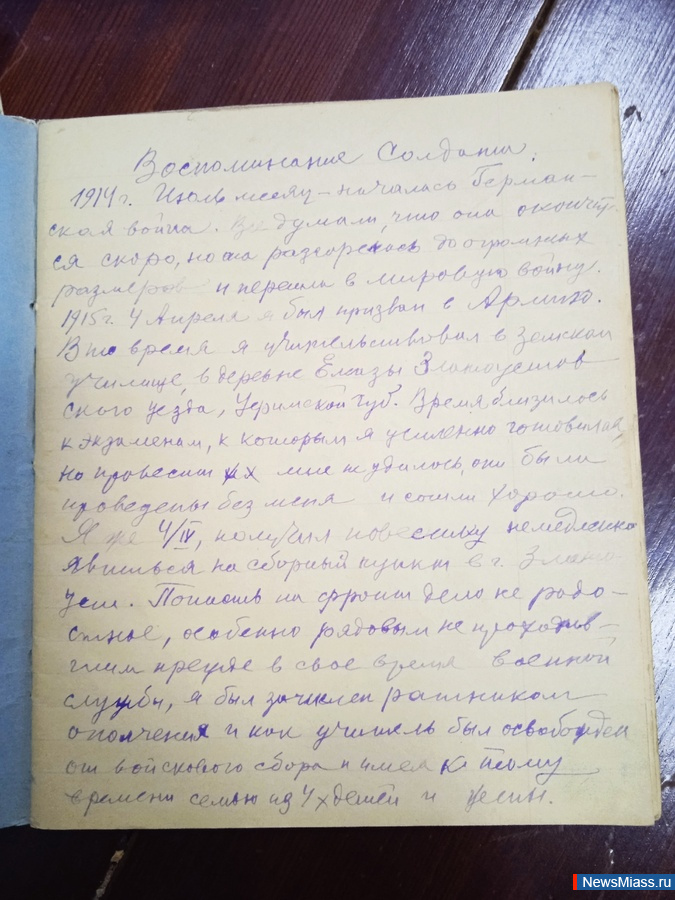 Воспоминание Солдата.
1914 г. Июль месяц – началась Герман-
ская война. Все думали, что она окончит-
ся скоро, но она разгорелась до огромных
размеров и перешла в мировую войну.
1915 г. 4 Апреля я был призван в Армию.
В то время я учительствовал в Земском
училище, в деревне Елгазы Златоустов
ского уезда, Уфимской губ. Время близилось
к экзаменам, к которым я усиленно готовился,
но провести их мне не удалось, они были
проведены без меня и сошли хорошо.
Я же 4/IV, получил повестку немедленно
явиться на сборный пункт в г. Злато-
уст. Попасть на фронт дело не радо-
стное, особенно рядовым не проходив-
шим прежде в свое время военной
службы, я был зачислен ратником
ополчения и как учитель был освобожден
от войскового сбора и имея к тому
времени семью из 4х детей и жены.
NewsMiass.ru